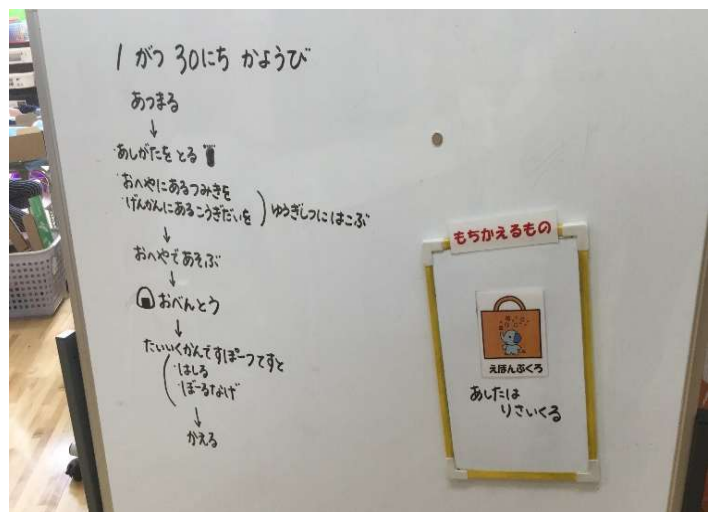 1がつ 30にち かようび
あつまる
↓
・あしがたをとる
・おへやにあるつみきを
・げんかんにあるこうぎだいを ) ゆうぎしつにはこぶ
↓
おへやであそぶ
↓
おべんとう
↓
たいいくかんですぽーつてすと
・はしる
・ぼーるなげ
↓
かえる
もちかえるもの
えほんぶくろ
あしたは
りさいくる